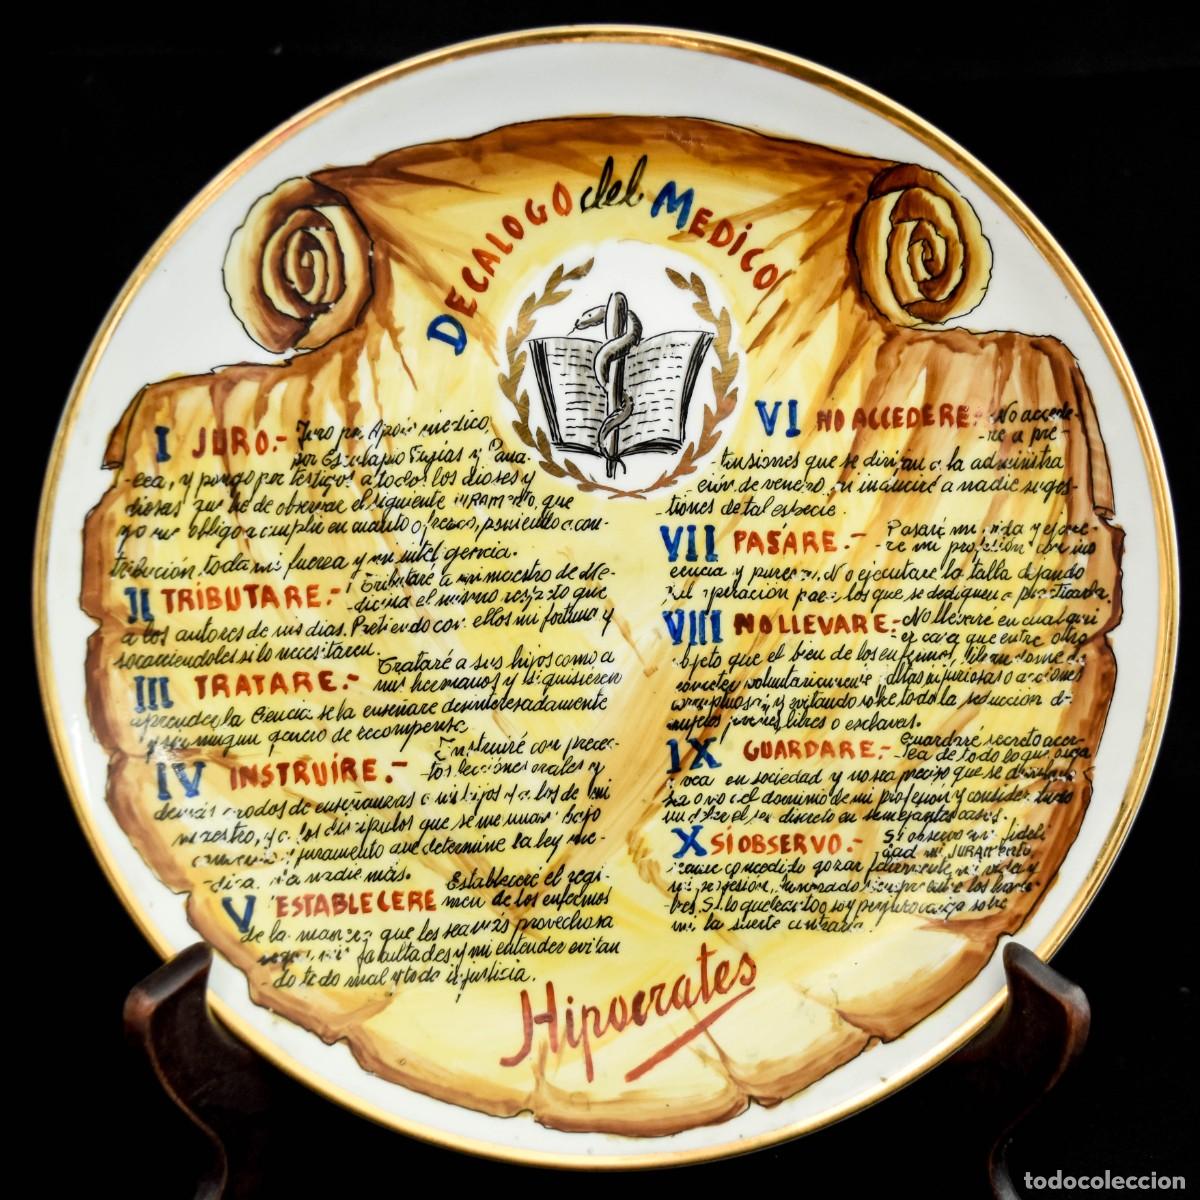 DECALOGO del MEDICO
I JURO.- Juro por Apolo médico,
por Esculapio
y pongo por testigos a todos los dioses y
diosas que he de observar el siguiente JURAMENTO, que
yo me obligo a cumplir en cuanto ofrezco, poniendo a con-
tribución toda mi fuerza y mi inteligencia.
II TRIBUTARE.- Tributaré a mi maestro de Me-
dicina el mismo respeto que
a los autores de mis dias. Partiendo con ellos mi fortuna y
socorriendoles si lo necesitaren.
III TRATARE.- Trataré a sus hijos como a
mis hermanos y si quisieren
aprender la Ciencia se la enseñare desinteresadamente
y sin ningun genero de recompensa.
IV INSTRUIRE.- Instruiré con precep-
tos lecciones orales y
demás modos de enseñanzas a mis hijos a los de mi
maestro, y a los discipulos que se me unan bajo
y juramento que determine la ley me-
dica. a nadie más.
V ESTABLECERE Estableceré el regi-
men de los enfermos
de la manera que les sea más provechosa
mis facultades y mi entender evitan
do todo mal y toda injusticia.
VI NO ACCEDERE.- No accede-
re a pre-
tensiones que se dirijan a la administra
ción de veneno, ni induciré a nadie suges-
tiones de tal especie.
VII PASÁRE.- Pasaré mi vida y ejerce-
re mi profesión con ino
cencia y pureza. No ejecutare la talla dejando
tal operación para los que se dediquen a practicarla.
VIII NO LLEVARE.- No llevaré en cualquier
casa que entre otro
objeto que el bien de los enfermos, librandome de
cometer voluntariamente faltas injuriosas o acciones
corruptoras y evitando sobre todo la seducción de
mujeres jovenes libres o esclavas.
IX GUARDARE.- Guardaré secreto acer-
ca de todo lo que oiga
o vea en sociedad y no sea preciso que se divulgue
sea o no el dominio de mi profesion y considerando
el ser discreto en semejantes casos.
X SI OBSERVO.- Si observo con fideli
dad mi JURAMENTO,
seame concedido gozar felizmente mi vida y
mi profesión, honrado siempre entre los hom-
bres. Si lo quebranto y soy perjuro caiga sobre
mi la suerte contraria.
Hipocrates
todocoleccion